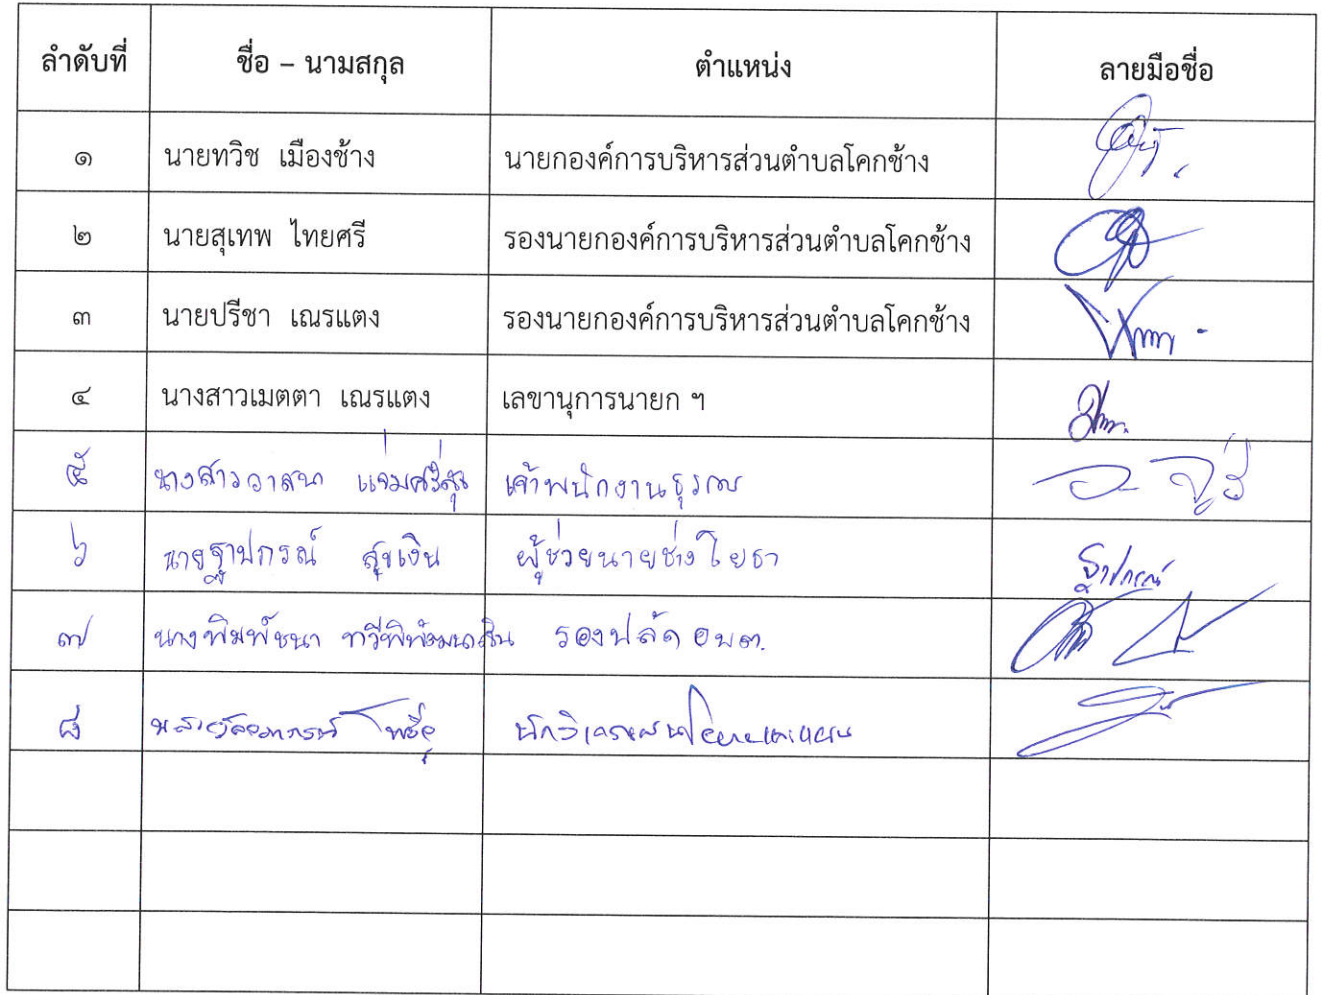 ลำดับที่ ชื่อ – นามสกุล ตำแหน่ง ลายมือชื่อ
๑ นายทวิช เมืองช้าง นายกองค์การบริหารส่วนตำบลโคกช้าง
๒ นายสุเทพ ไทยศรี รองนายกองค์การบริหารส่วนตำบลโคกช้าง
๓ นายปรีชา เณรแตง รองนายกองค์การบริหารส่วนตำบลโคกช้าง
๔ นางสาวเมตตา เณรแตง เลขานุการนายก ฯ
๕ นางสาววาสนา เจ้าพนักงานธุรการ
๖ นายฐาปกรณ์ สุขเงิน ผู้ช่วยนายช่างโยธา ฐาปกรณ์
๗ นางพิมพ์ชนา รองปลัด อบต.
๘ นักวิเคราะห์นโยบายและแผน